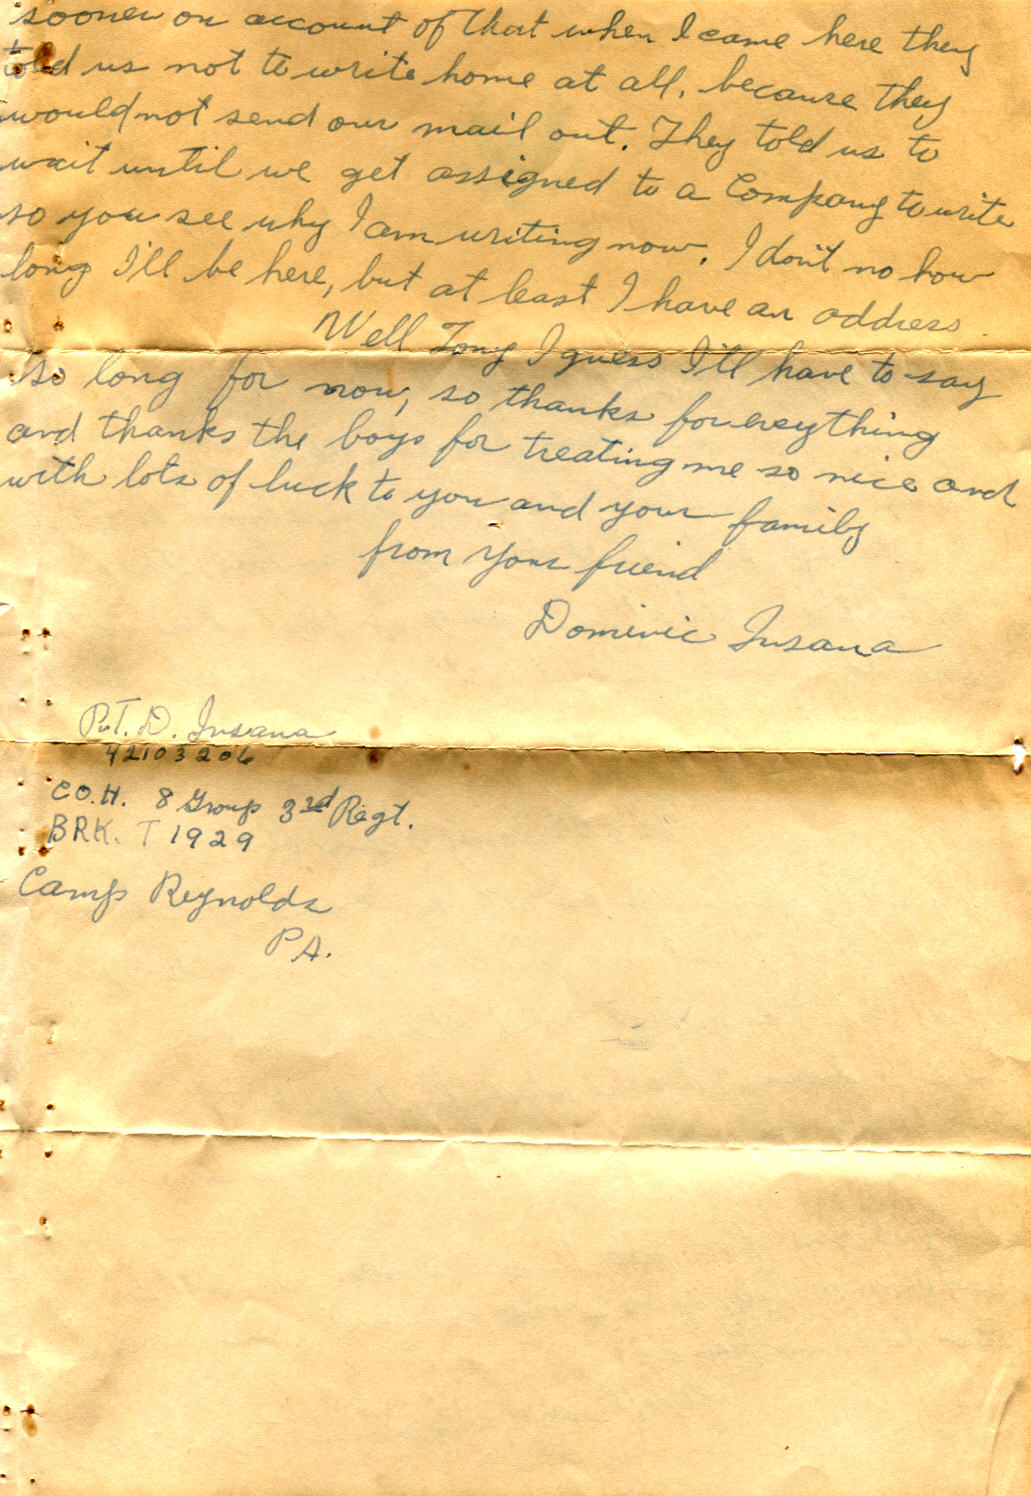 sooner on account of that when I came here they
told us not to write home at all, because they
would not send our mail out. They told us to
wait until we get assigned to a Company to write
so you see why I am writing now. I don't no how
long I'll be here, but at least I have an address.
Well Tony I guess I'll have to say
so long for now, so thanks for ereything
and thanks the boys for treating me so nice and
with lots of luck to you and your family
from your friend
Dominic Insana
PvT. D. Insana
42103206
CO.H. 8 Group 3rd Regt.
BRK. T 1929
Camp Reynolds
PA.